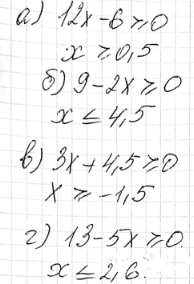 а) 12x-6≥0
x≥0,5
б) 9-2x≥0
x≤4,5
в) 3x+4,5≥0
x≥-1,5
г) 13-5x≥0.
x≤2,6.